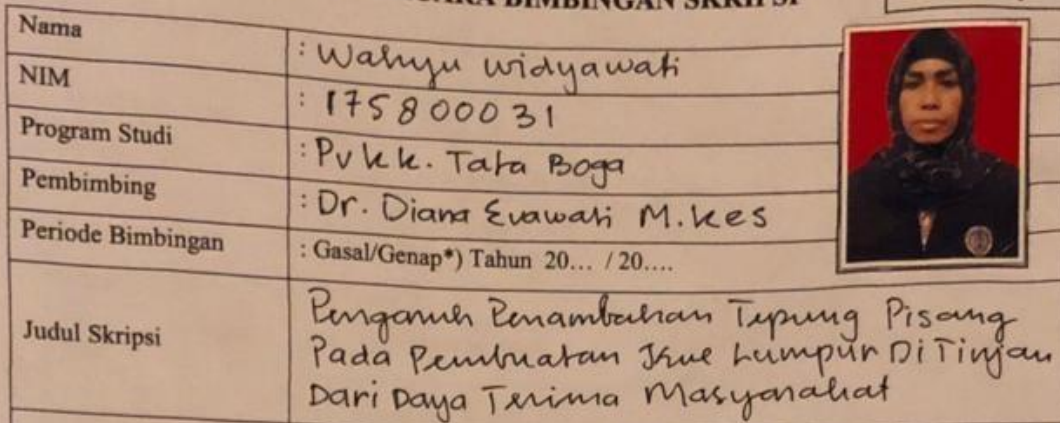 BIMBINGAN SKRIPSI
Nama : Wahyu widyawati
NIM : 175800031
Program Studi : Pvkk. Tata Boga
Pembimbing : Dr. Diana Evawati M.kes
Periode Bimbingan : Gasal/Genap*) Tahun 20... / 20....
Judul Skripsi Pengaruh Penambahan Tepung Pisang
Pada Pembuatan Kue Lumpur Di Tinjau
Dari Daya Terima Masyarakat